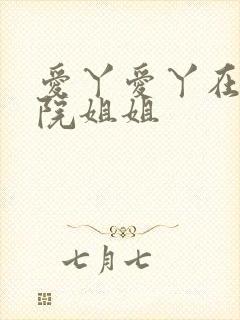 爱丫爱丫在
院姐姐
七月七